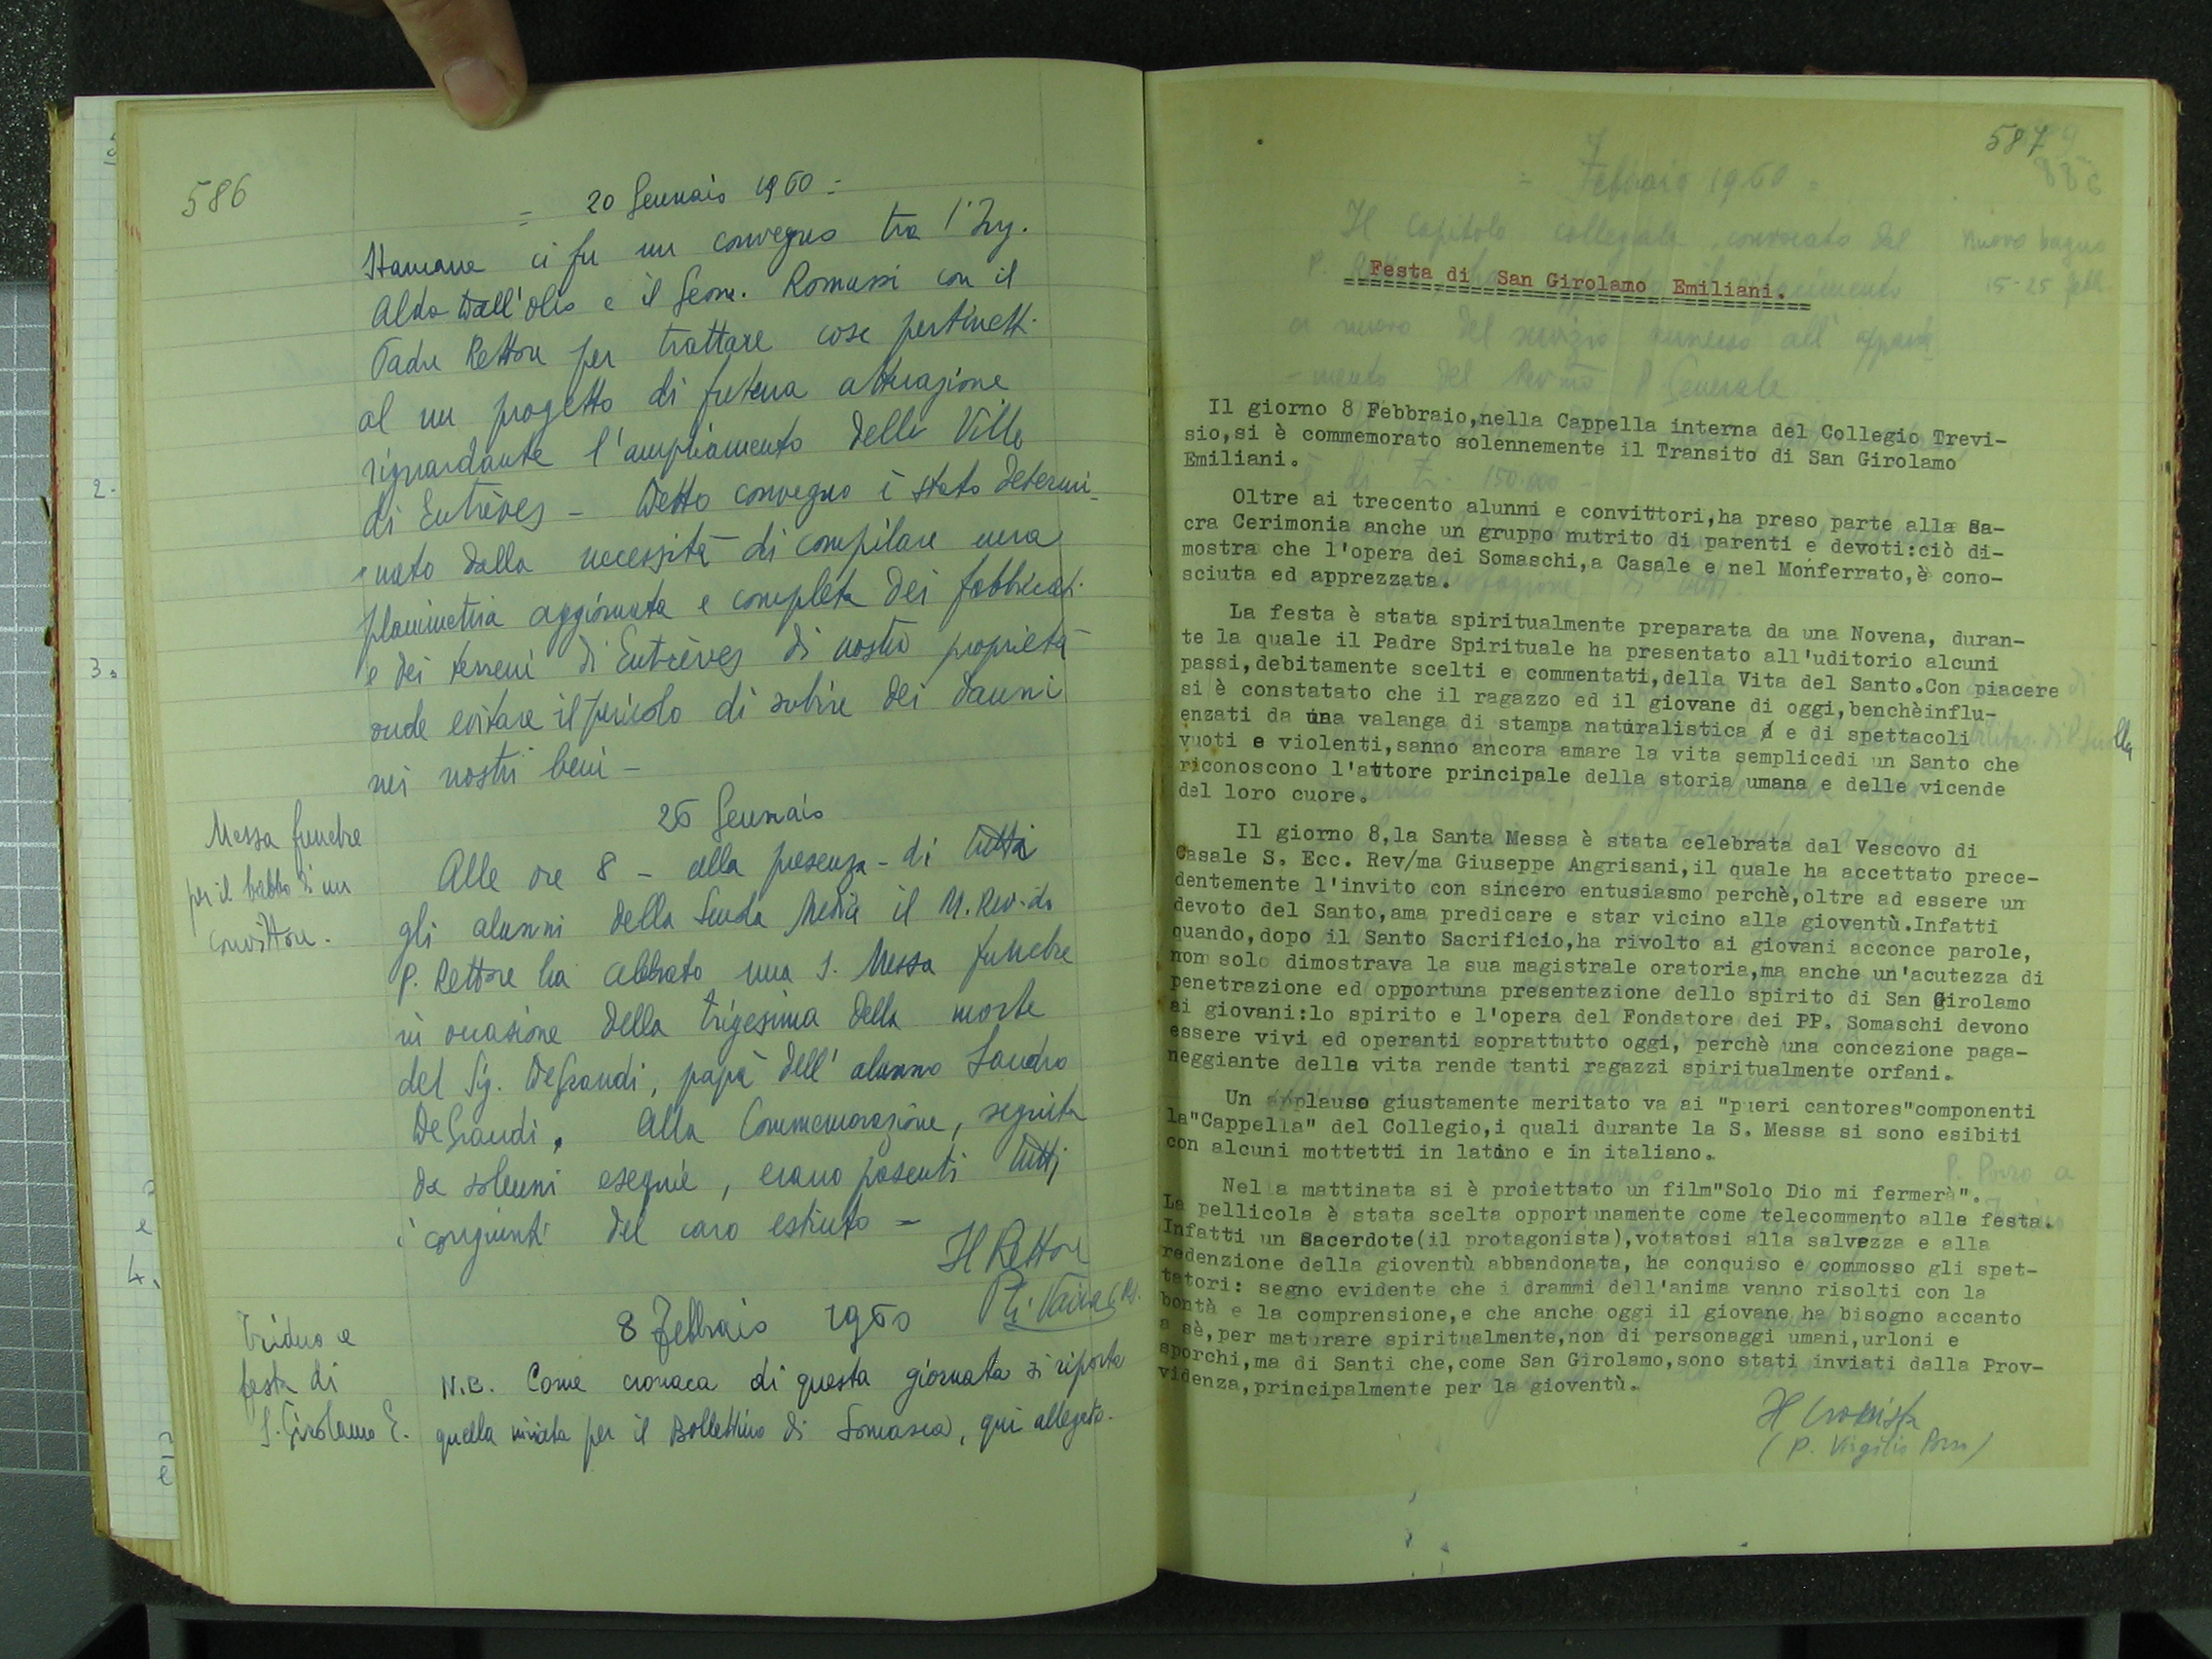 586
= 20 Gennaio 1960 =
Stamane ci fu un convegno tra l'Ing.
Aldo Dall'Olio e il Geom. Romussi con il
Padre Rettore per trattare cose pertinenti
al un progetto di futura attuazione
riguardante l'ampliamento della Villa
di Entrèves - Detto convegno è stato determi-
nato dalla necessità di compilare una
planimetria aggiornata e completa dei fabbricati
e dei terreni di Entrèves di nostra proprietà
onde evitare il pericolo di subire dei danni
nei nostri beni -
Messa funebre
per il babbo di un
convittore.
26 Gennaio
Alle ore 8 - alla presenza - di tutti
gli alunni della Scuola Media il M. Rev.do
P. Rettore ha celebrato una S. Messa funebre
in occasione della trigesima della morte
del Sig. DeGrandi, papà dell'alunno Sandro
DeGrandi. Alla Commemorazione, seguita
da solenni esequie, erano presenti tutti
i congiunti del caro estinto -
Il Rettore
Triduo e
festa di
S. Girolamo E.
8 Febbraio 1960
N.B. Come cronaca di questa giornata si riporta
quella inviata per il Bollettino di Somasca, qui allegato.
587
Festa di San Girolamo Emiliani.
Il giorno 8 Febbraio,nella Cappella interna del Collegio Trevi-
sio,si è commemorato solennemente il Transito di San Girolamo
Emiliani.
Oltre ai trecento alunni e convittori,ha preso parte alla Sa-
cra Cerimonia anche un gruppo nutrito di parenti e devoti:ciò di-
mostra che l'opera dei Somaschi,a Casale e nel Monferrato,è cono-
sciuta ed apprezzata.
La festa è stata spiritualmente preparata da una Novena, duran-
te la quale il Padre Spirituale ha presentato all'uditorio alcuni
passi,debitamente scelti e commentati,della Vita del Santo.Con piacere
si è constatato che il ragazzo ed il giovane di oggi,benchèinflu-
enzati da una valanga di stampa naturalistica e di spettacoli
vuoti e violenti,sanno ancora amare la vita semplicedi un Santo che
riconoscono l'attore principale della storia umana e delle vicende
del loro cuore.
Il giorno 8,la Santa Messa è stata celebrata dal Vescovo di
Casale S. Ecc. Rev/ma Giuseppe Angrisani,il quale ha accettato prece-
dentemente l'invito con sincero entusiasmo perchè,oltre ad essere un
devoto del Santo,ama predicare e star vicino alla gioventù.Infatti
quando,dopo il Santo Sacrificio,ha rivolto ai giovani acconce parole,
non solo dimostrava la sua magistrale oratoria,ma anche un'acutezza di
penetrazione ed opportuna presentazione dello spirito di San Girolamo
ai giovani:lo spirito e l'opera del Fondatore dei PP. Somaschi devono
essere vivi ed operanti soprattutto oggi, perchè una concezione paga-
neggiante della vita rende tanti ragazzi spiritualmente orfani.
Un applauso giustamente meritato va ai "pueri cantores"componenti
la"Cappella" del Collegio,i quali durante la S. Messa si sono esibiti
con alcuni mottetti in latino e in italiano.
Nel a mattinata si è proiettato un film"Solo Dio mi fermerà".
La pellicola è stata scelta opportunamente come telecommento alla festa.
Infatti un Sacerdote(il protagonista),votatosi alla salvezza e alla
redenzione della gioventù abbandonata, ha conquiso e commosso gli spet-
tatori: segno evidente che i drammi dell'anima vanno risolti con la
bontà e la comprensione,e che anche oggi il giovane ha bisogno accanto
a sè,per maturare spiritualmente,non di personaggi umani,urloni e
sporchi,ma di Santi che,come San Girolamo,sono stati inviati dalla Prov-
videnza,principalmente per la gioventù.
Il Cronista
(P. Virgilio Porro)